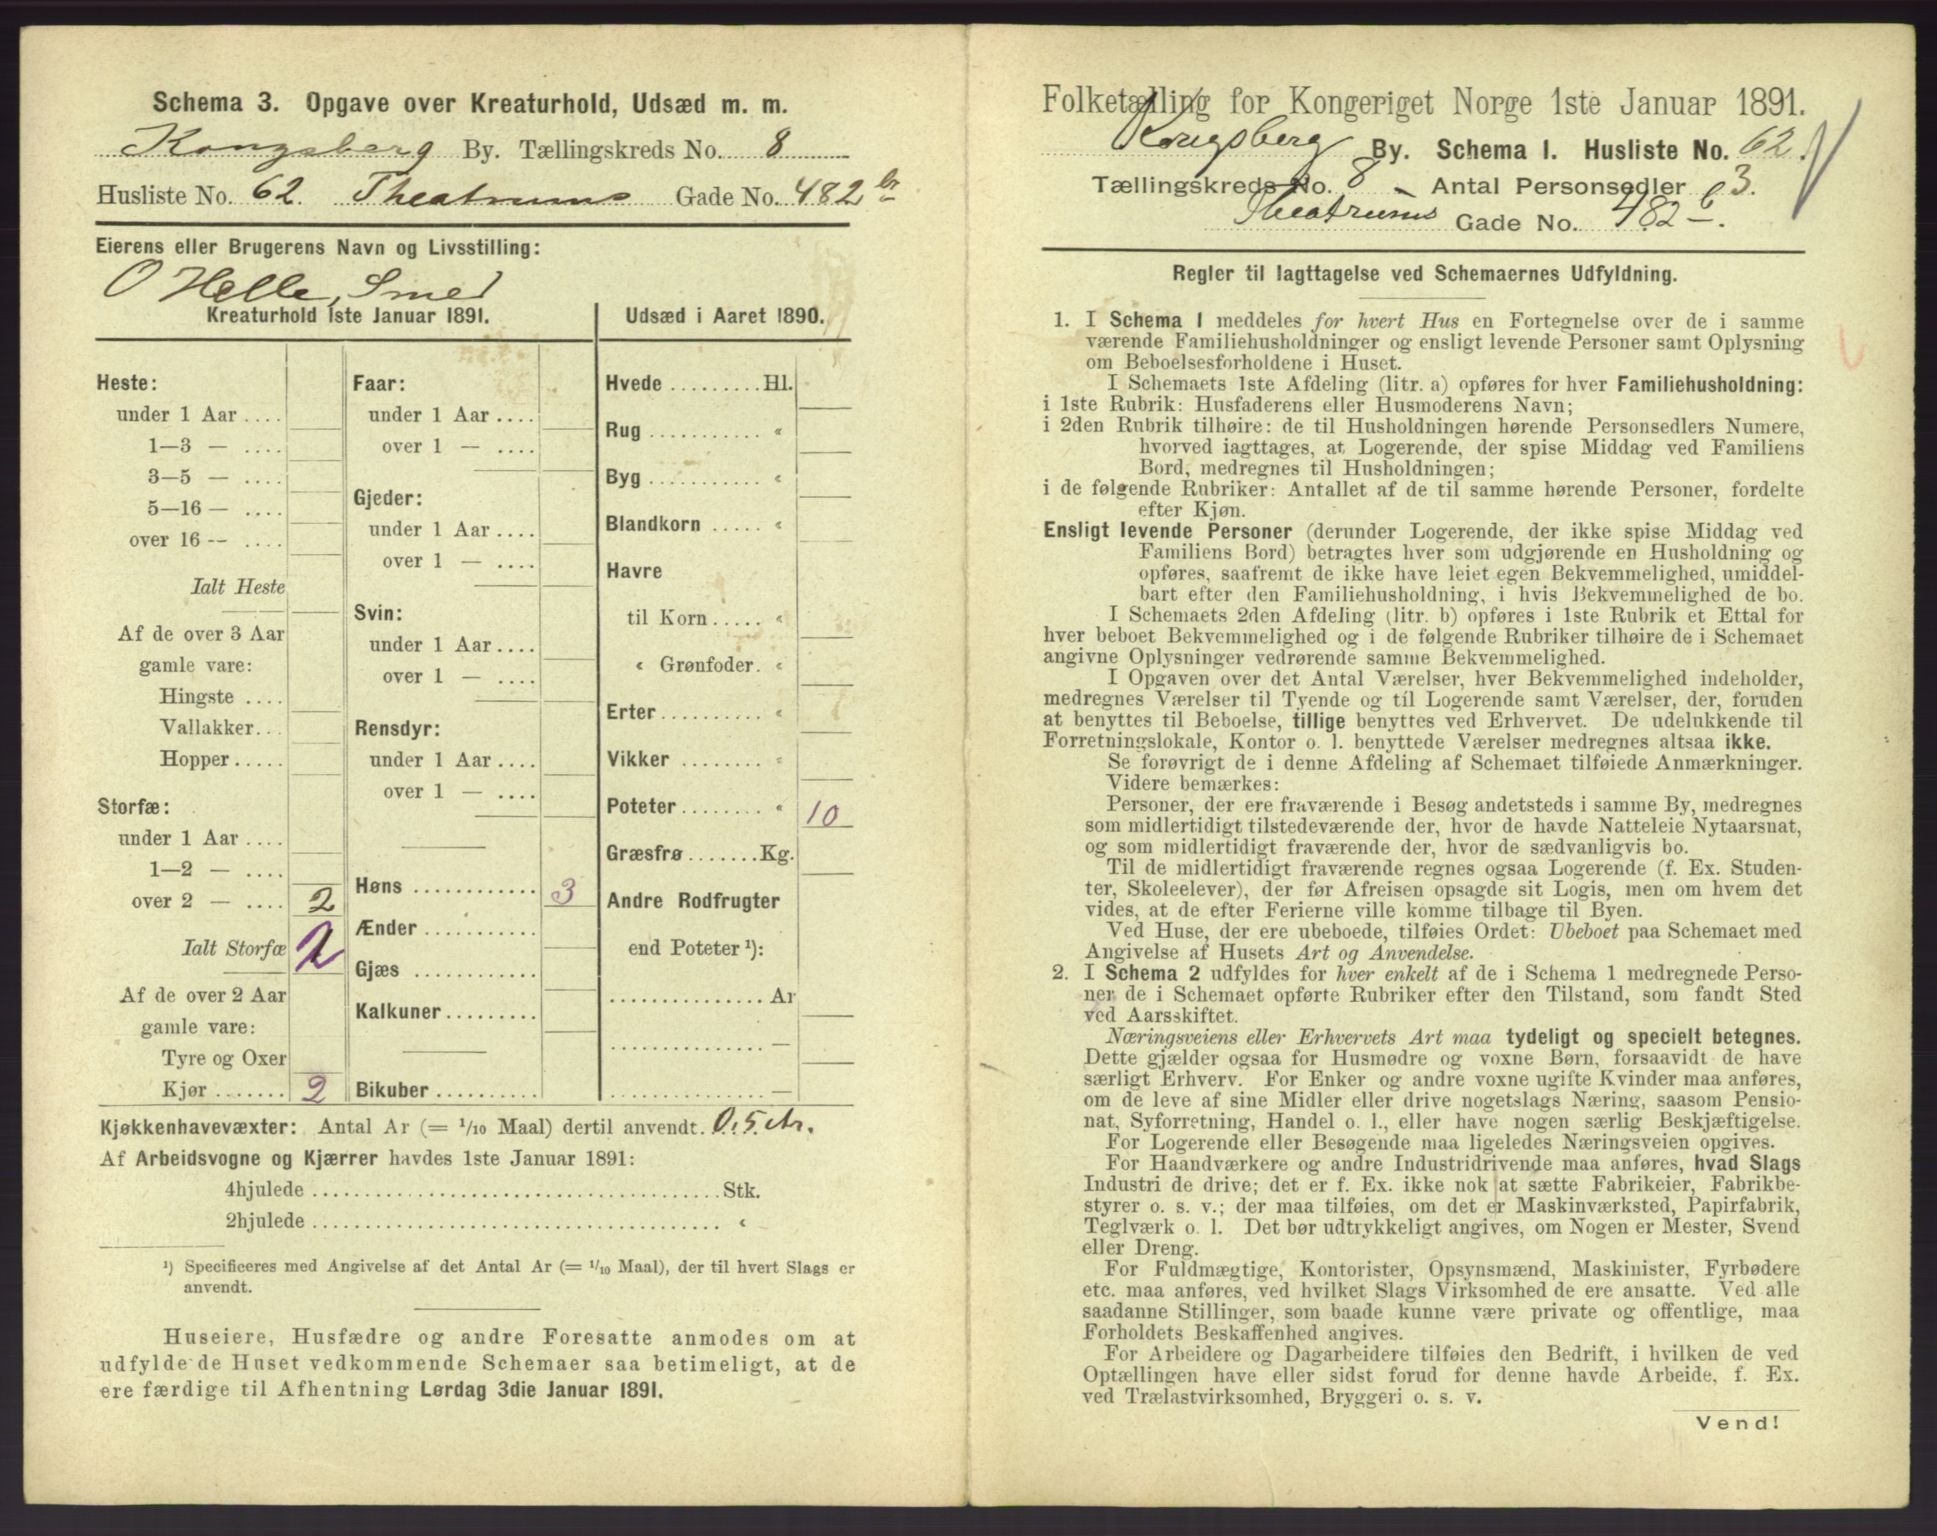 Schema 3. Opgave over Kreaturhold, Udsæd m. m.
Kongsberg By. Tællingskreds No. 8
Husliste No. 62. Theatrums Gade No. 482 b
Eierens eller Brugerens Navn og Livsstilling:
O Helle, Smed
Kreaturhold 1ste Januar 1891.
Heste:
under 1 Aar ....
1—3 — ....
3—5 — ....
5—16 — ....
over 16 -- ....
Ialt Heste
Af de over 3 Aar
gamle vare:
Hingste ....
Vallakker...
Hopper.....
Storfæ:
under 1 Aar ....
1—2 — ....
over 2 — .... 2
Ialt Storfæ 2
Af de over 2 Aar
gamle vare:
Tyre og Oxer
Kjør....... 2
Faar:
under 1 Aar ....
over 1 — ....
Gjeder:
under 1 Aar ....
over 1 — ....
Svin:
under 1 Aar ....
over 1 — ....
Rensdyr:
under 1 Aar ....
over 1 — ....
Høns ............ 3
Ænder ...........
Gjæs ............
Kalkuner.........
Bikuber..........
Udsæd i Aaret 1890.
Hvede .........Hl.
Rug ........... «
Byg ........... «
Blandkorn ..... «
Havre
til Korn..... «
« Grønfoder. «
Erter.......... «
Vikker ........ «
Poteter........ « 10
Græsfrø.......Kg.
Andre Rodfrugter
end Poteter ¹):
............... Ar
............... —
............... —
Kjøkkenhavevæxter: Antal Ar (= 1/10 Maal) dertil anvendt. 0.5 Ar.
Af Arbeidsvogne og Kjærrer havdes 1ste Januar 1891:
4hjulede ........................................Stk.
2hjulede ........................................ «
¹) Specificeres med Angivelse af det Antal Ar (= 1/10 Maal), der til hvert Slags er
anvendt.
Huseiere, Husfædre og andre Foresatte anmodes om at
udfylde de Huset vedkommende Schemaer saa betimeligt, at de
ere færdige til Afhentning Lørdag 3die Januar 1891.
Folketælling for Kongeriget Norge 1ste Januar 1891.
Kongsberg By. Schema I. Husliste No. 62.
Tællingskreds No. 8 - Antal Personsedler 3.
Theatrums Gade No. 482 b.
Regler til Iagttagelse ved Schemaernes Udfyldning.
1. I Schema 1 meddeles for hvert Hus en Fortegnelse over de i samme
værende Familiehusholdninger og ensligt levende Personer samt Oplysning
om Beboelsesforholdene i Huset.
I Schemaets 1ste Afdeling (litr. a) opføres for hver Familiehusholdning:
i 1ste Rubrik: Husfaderens eller Husmoderens Navn;
i 2den Rubrik tilhøire: de til Husholdningen hørende Personsedlers Numere,
hvorved iagttages, at Logerende, der spise Middag ved Familiens
Bord, medregnes til Husholdningen;
i de følgende Rubriker: Antallet af de til samme hørende Personer, fordelte
efter Kjøn.
Ensligt levende Personer (derunder Logerende, der ikke spise Middag ved
Familiens Bord) betragtes hver som udgjørende en Husholdning og
opføres, saafremt de ikke have leiet egen Bekvemmelighed, umiddel-
bart efter den Familiehusholdning, i hvis Bekvemmelighed de bo.
I Schemaets 2den Afdeling (litr. b) opføres i 1ste Rubrik et Ettal for
hver beboet Bekvemmelighed og i de følgende Rubriker tilhøire de i Schemaet
angivne Oplysninger vedrørende samme Bekvemmelighed.
I Opgaven over det Antal Værelser, hver Bekvemmelighed indeholder,
medregnes Værelser til Tyende og til Logerende samt Værelser, der, foruden
at benyttes til Beboelse, tillige benyttes ved Erhvervet. De udelukkende til
Forretningslokale, Kontor o. l. benyttede Værelser medregnes altsaa ikke.
Se forøvrigt de i denne Afdeling af Schemaet tilføiede Anmærkninger.
Videre bemærkes:
Personer, der ere fraværende i Besøg andetsteds i samme By, medregnes
som midlertidigt tilstedeværende der, hvor de havde Natteleie Nytaarsnat,
og som midlertidigt fraværende der, hvor de sædvanligvis bo.
Til de midlertidigt fraværende regnes ogsaa Logerende (f. Ex. Studen-
ter, Skoleelever), der før Afreisen opsagde sit Logis, men om hvem det
vides, at de efter Ferierne ville komme tilbage til Byen.
Ved Huse, der ere ubeboede, tilføies Ordet: Ubeboet paa Schemaet med
Angivelse af Husets Art og Anvendelse.
2. I Schema 2 udfyldes for hver enkelt af de i Schema 1 medregnede Perso-
ner de i Schemaet opførte Rubriker efter den Tilstand, som fandt Sted
ved Aarsskiftet.
Næringsveiens eller Erhvervets Art maa tydeligt og specielt betegnes.
Dette gjælder ogsaa for Husmødre og voxne Børn, forsaavidt de have
særligt Erhverv. For Enker og andre voxne ugifte Kvinder maa anføres,
om de leve af sine Midler eller drive nogetslags Næring, saasom Pensio-
nat, Syforretning, Handel o. l., eller have nogen særlig Beskjæftigelse.
For Logerende eller Besøgende maa ligeledes Næringsveien opgives.
For Haandværkere og andre Industridrivende maa anføres, hvad Slags
Industri de drive; det er f. Ex. ikke nok at sætte Fabrikeier, Fabrikbe-
styrer o. s. v.; der maa tilføies, om det er Maskinværksted, Papirfabrik,
Teglværk o. l. Det bør udtrykkeligt angives, om Nogen er Mester, Svend
eller Dreng.
For Fuldmægtige, Kontorister, Opsynsmænd, Maskinister, Fyrbødere
etc. maa anføres, ved hvilket Slags Virksomhed de ere ansatte. Ved alle
saadanne Stillinger, som baade kunne være private og offentlige, maa
Forholdets Beskaffenhed angives.
For Arbeidere og Dagarbeidere tilføies den Bedrift, i hvilken de ved
Optællingen have eller sidst forud for denne havde Arbeide, f. Ex.
ved Trælastvirksomhed, Bryggeri o. s. v.
Vend!